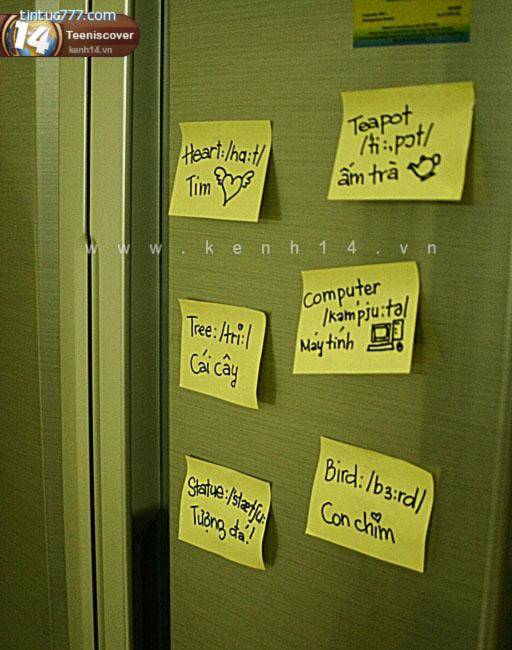 tintuc777.com
14
Teeniscover
kenh14.vn
Heart:/hɑ:t/
Tim
Teapot
/ti:,pɔt/
ấm trà
www.kenh14.vn
Computer
/kəm'pju:tə/
Máy tính
Tree:/tri:/
Cái cây
Statue:/stætʃu:
Tượng đá!
Bird:/bɜ:rd/
Con chim